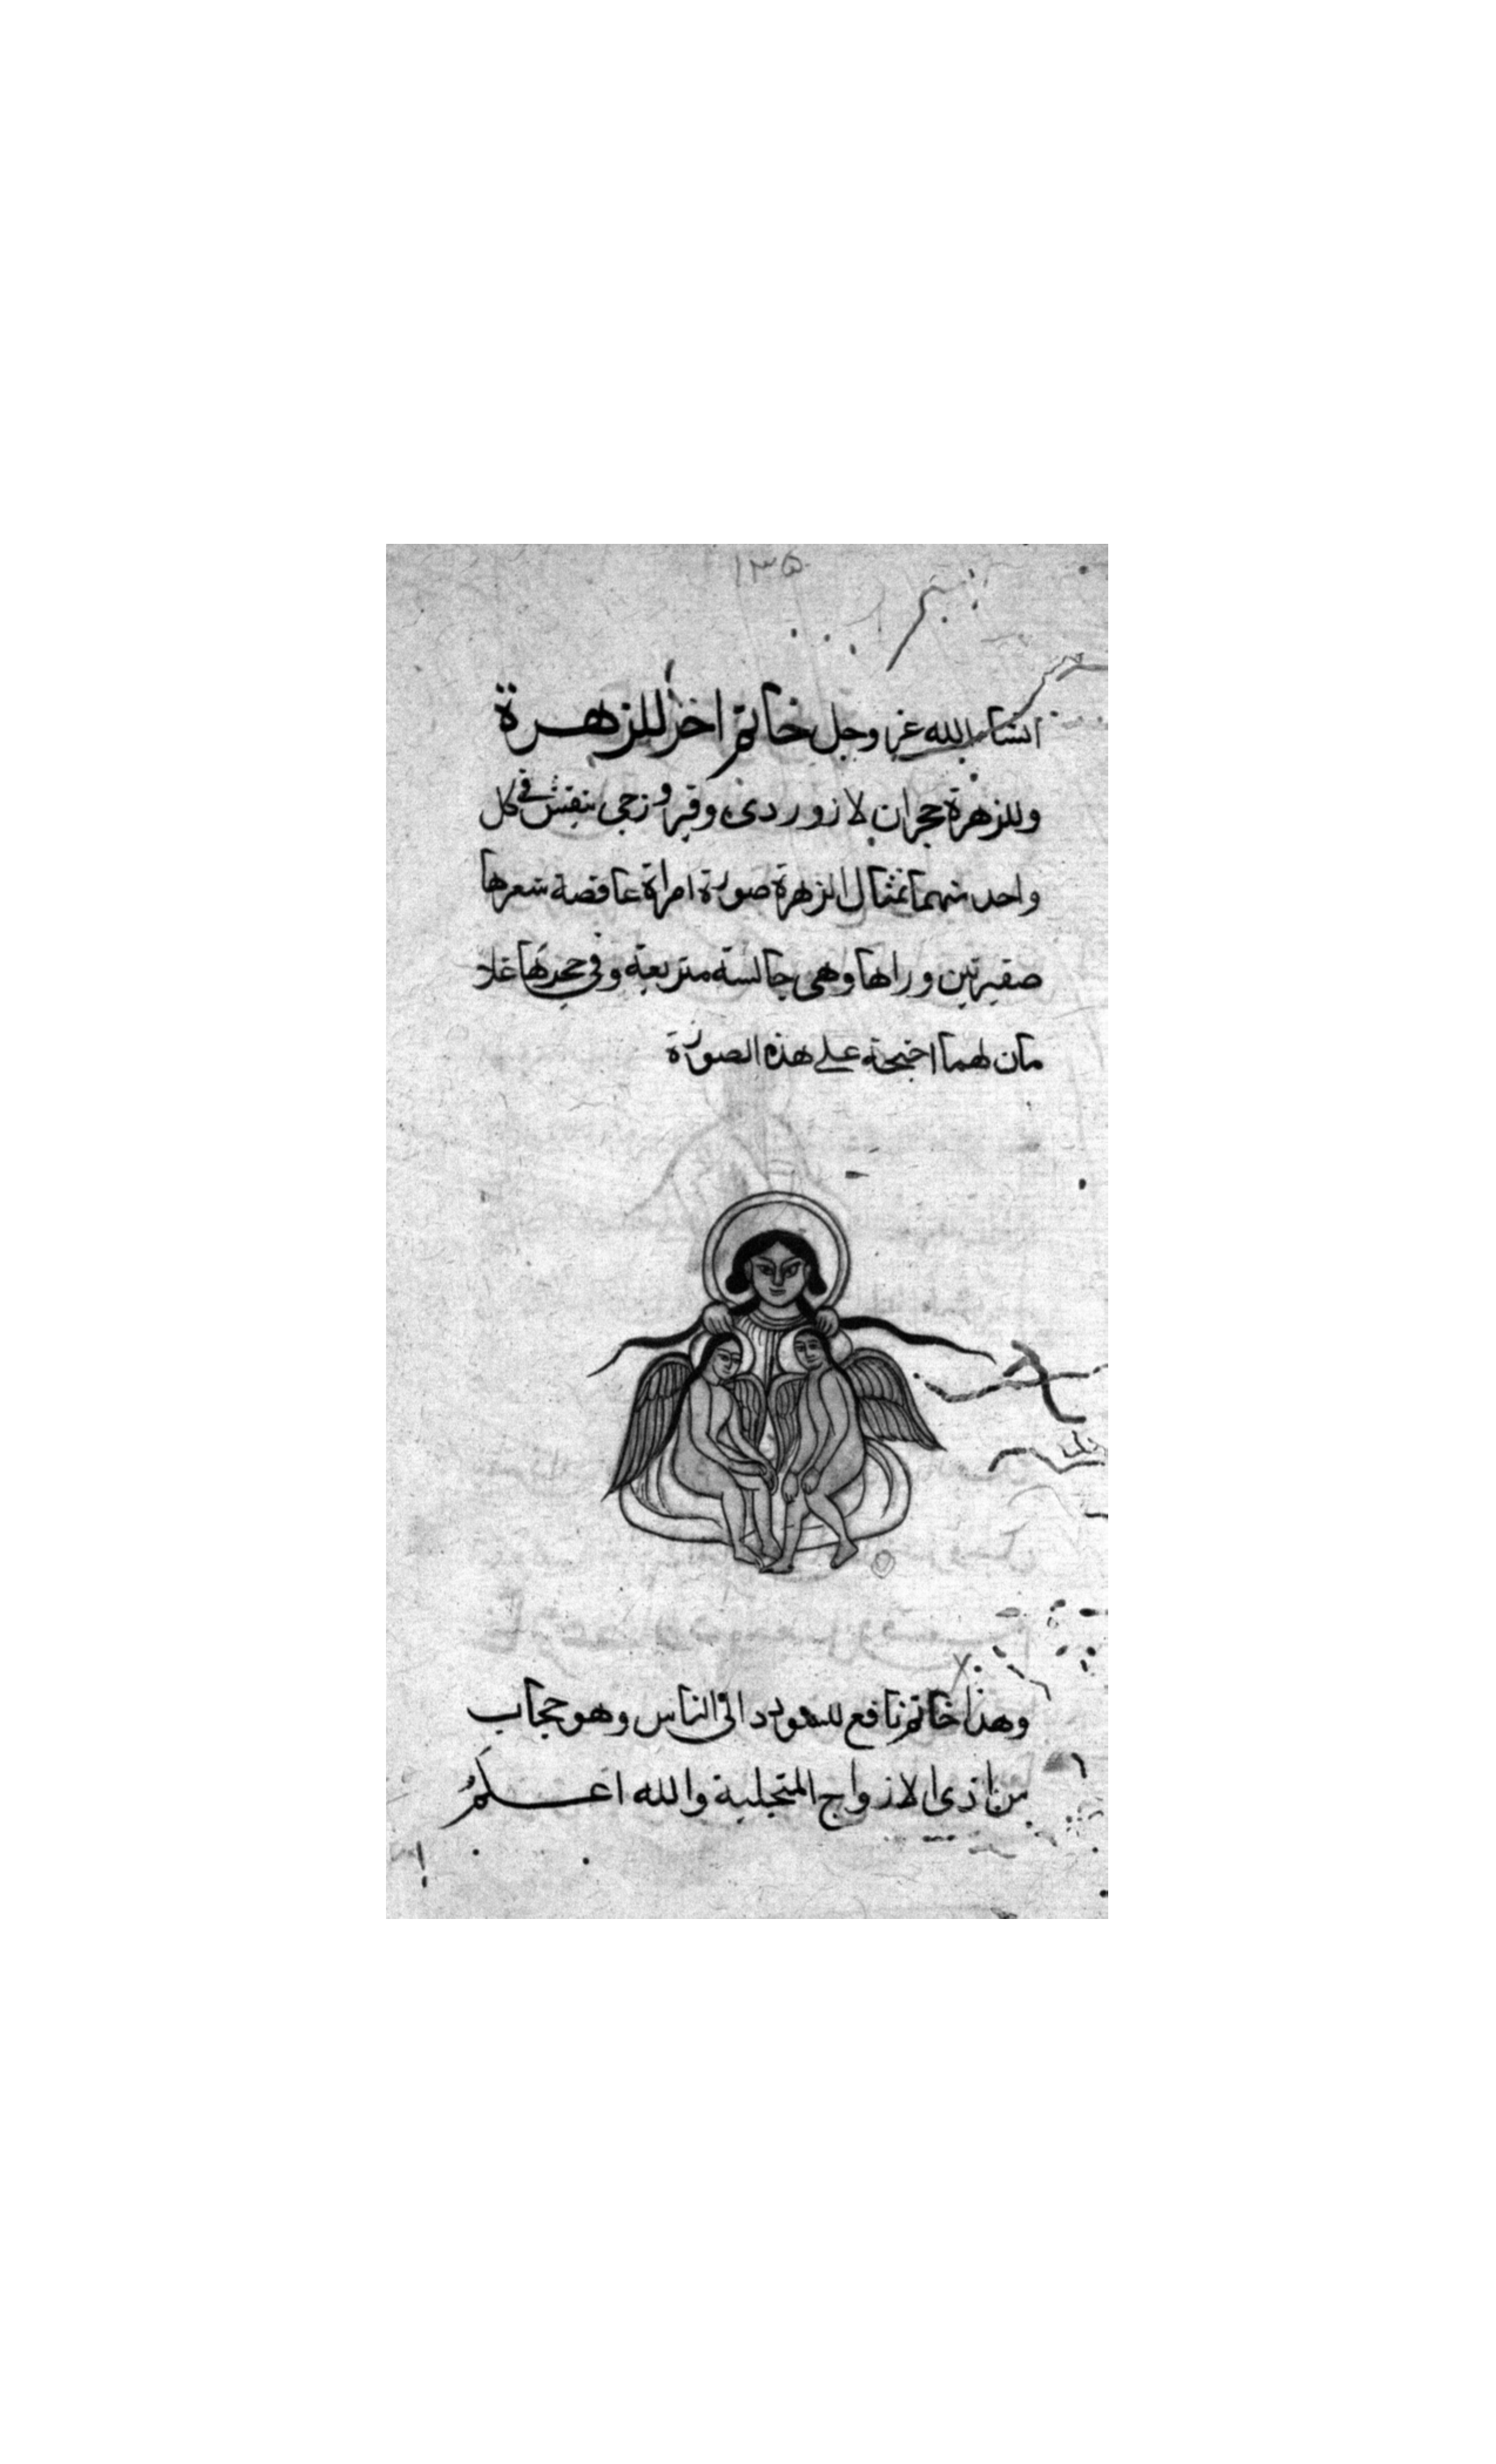 ١٣٥
انشا الله عز وجل خاتم اخر للزهرة
وللزهرة حجران لازوردى وفيروزجى ينقش فى كل
واحد منهما تمثال الزهرة صورة امراة عاقصة شعرها
صفيرتين وراها وهى جالسة متربعة وفى حجرها غلا
مان لهما اجنحة على هذه الصورة
وهذا خاتم نافع للتودد الى الناس وهو حجاب
من اذى الازواج المتجلبة والله اعلم